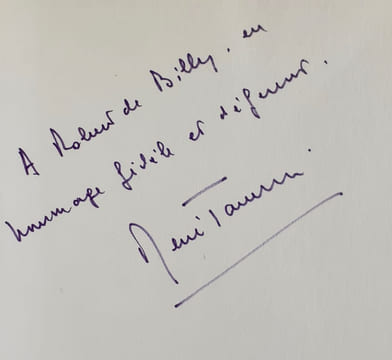 A Robert de Billy, en
hommage fidèle et déférent.
René Tavernier.